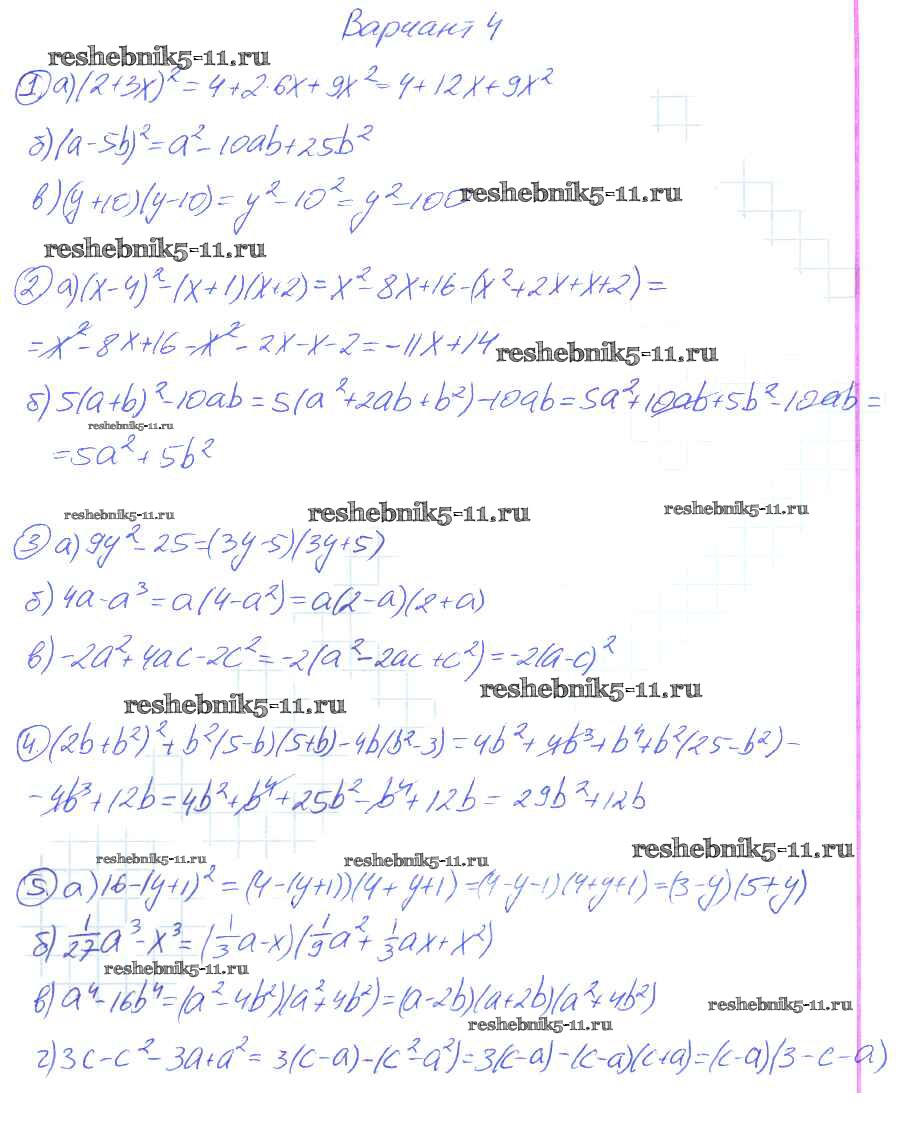 Вариант 4
reshebnik5-11.ru
① а) (2+3x)² = 4+2·6x+9x² = 4+12x+9x²
б) (a-5b)² = a²-10ab+25b²
в) (y+10)(y-10) = y²-10² = y²-100
reshebnik5-11.ru
reshebnik5-11.ru
② а) (x-4)²-(x+1)(x+2) = x²-8x+16-(x²+2x+x+2) =
= x²-8x+16-x²-2x-x-2 = -11x+14
reshebnik5-11.ru
б) 5(a+b)²-10ab = 5(a²+2ab+b²)-10ab = 5a²+10ab+5b²-10ab =
reshebnik5-11.ru
= 5a²+5b²
reshebnik5-11.ru reshebnik5-11.ru reshebnik5-11.ru
③ а) 9y²-25 = (3y-5)(3y+5)
б) 4a-a³ = a(4-a²) = a(2-a)(2+a)
в) -2a²+4ac-2c² = -2(a²-2ac+c²) = -2(a-c)²
reshebnik5-11.ru
reshebnik5-11.ru
④ (2b+b²)²+b²(5-b)(5+b)-4b(b²-3) = 4b²+4b³+b⁴+b²(25-b²)-
-4b³+12b = 4b²+b⁴+25b²-b⁴+12b = 29b²+12b
reshebnik5-11.ru
reshebnik5-11.ru reshebnik5-11.ru
⑤ а) 16-(y+1)² = (4-(y+1))(4+y+1) = (4-y-1)(4+y+1) = (3-y)(5+y)
б) 1/27a³-x³ = (1/3a-x)(1/9a²+1/3ax+x²)
reshebnik5-11.ru
в) a⁴-16b⁴ = (a²-4b²)(a²+4b²) = (a-2b)(a+2b)(a²+4b²)
reshebnik5-11.ru
reshebnik5-11.ru
г) 3c-c²-3a+a² = 3(c-a)-(c²-a²) = 3(c-a)-(c-a)(c+a) = (c-a)(3-c-a)